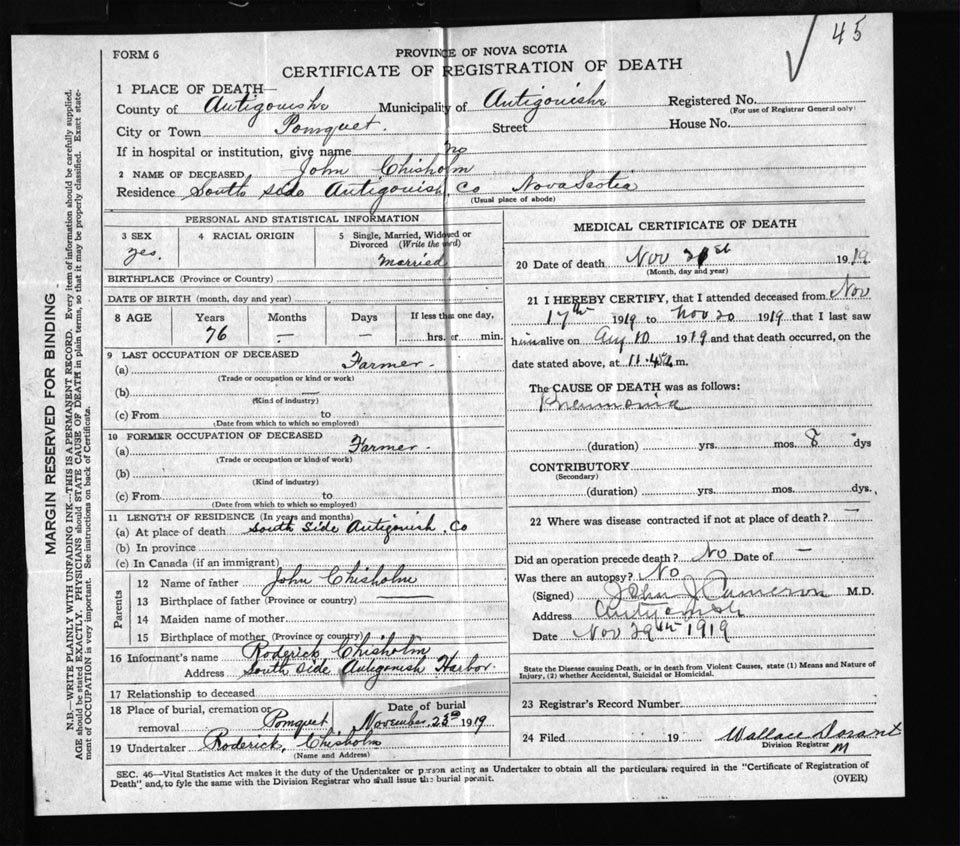 45
FORM 6
PROVINCE OF NOVA SCOTIA
CERTIFICATE OF REGISTRATION OF DEATH
1 PLACE OF DEATH—
County of Antigonishe Municipality of Antigonishe Registered No.
(For use of Registrar General only)
City or Town Pomquet. Street House No.
If in hospital or institution, give name no
2 NAME OF DECEASED John Chisholm
Residence South Side Antigonish, Co Nova Scotia
(Usual place of abode)
PERSONAL AND STATISTICAL INFORMATION
3 SEX 4 RACIAL ORIGIN 5 Single, Married, Widowed or Divorced (Write the word)
yes. Married
BIRTHPLACE (Province or Country)
DATE OF BIRTH (month, day and year)
8 AGE Years Months Days If less than one day,
76 — — hrs. or min.
9 LAST OCCUPATION OF DECEASED
(a) Farmer.
(Trade or occupation or kind or work)
(b) —
(Kind of industry)
(c) From to
(Date from which to which so employed)
10 FORMER OCCUPATION OF DECEASED
(a) Farmer.
(Trade or occupation or kind of work)
(b)
(Kind of industry)
(c) From to
(Date from which to which so employed)
11 LENGTH OF RESIDENCE (In years and months)
(a) At place of death South Side Antigonish, Co
(b) In province
(c) In Canada (if an immigrant)
Parents
12 Name of father John Chisholm
13 Birthplace of father (Province or country) —
14 Maiden name of mother
15 Birthplace of mother (Province or country)
16 Informant's name Roderick Chisholm
Address South Side Antigonish Harbor.
17 Relationship to deceased
18 Place of burial, cremation or removal Pomquet Date of burial November 23rd 1919
19 Undertaker Roderick, Chisholm
(Name and Address)
MEDICAL CERTIFICATE OF DEATH
20 Date of death Nov 21st 1919.
(Month, day and year)
21 I HEREBY CERTIFY, that I attended deceased from Nov
17th 1919 to Nov 20 1919 that I last saw
him alive on 1919 and that death occurred, on the
date stated above, at m.
The CAUSE OF DEATH was as follows:
Pneumonia
(duration) yrs. mos. 8 dys
CONTRIBUTORY
(Secondary)
(duration) yrs. mos. dys.
22 Where was disease contracted if not at place of death? —
Did an operation precede death? No Date of —
Was there an autopsy? No
(Signed) John J Cameron M.D.
Address Antigonish
Date Nov 29th 1919
State the Disease causing Death, or in death from Violent Causes, state (1) Means and Nature of
Injury, (2) whether Accidental, Suicidal or Homicidal.
23 Registrar's Record Number
24 Filed 19 Wallace
Division Registrar
SEC. 46—Vital Statistics Act makes it the duty of the Undertaker or person acting as Undertaker to obtain all the particulars, required in the "Certificate of Registration of
Death", and to fyle the same with the Division Registrar who shall issue the burial permit. (OVER)
MARGIN RESERVED FOR BINDING
N.B.—WRITE PLAINLY WITH UNFADING INK—THIS IS A PERMANENT RECORD. Every item of information should be carefully supplied.
AGE should be stated EXACTLY. PHYSICIANS should STATE CAUSE OF DEATH in plain terms, so that it may be properly classified. Exact state-
ment of OCCUPATION is very important. See instructions on back of Certificate.